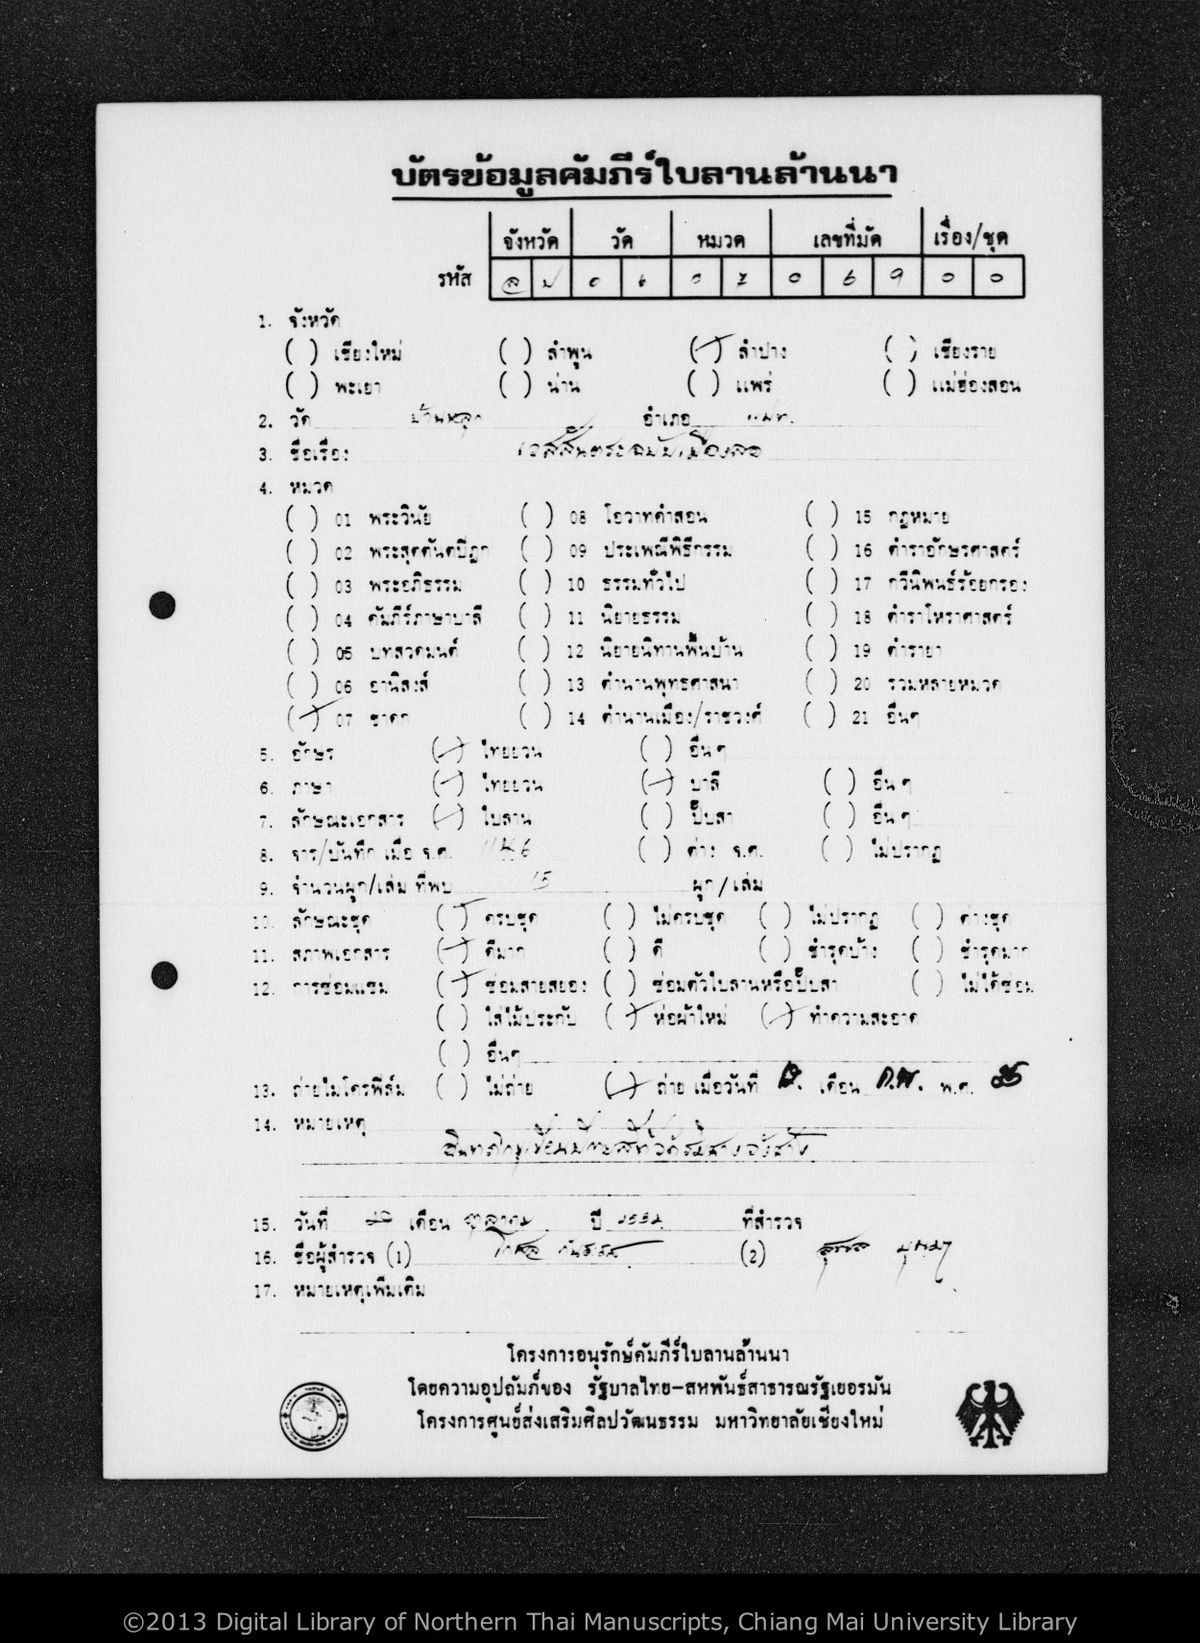 บัตรข้อมูลคัมภีร์ใบลานล้านนา
จังหวัด วัด หมวด เลขที่มัด เรื่อง/ชุด
รหัส ล ป 0 6 0 7 0 6 9 0 0
1. จังหวัด
( ) เชียงใหม่ ( ) ลำพูน (/) ลำปาง ( ) เชียงราย
( ) พะเยา ( ) น่าน ( ) แพร่ ( ) แม่ฮ่องสอน
2. วัด บ้านหลุก อำเภอ แม่ทะ
3. ชื่อเรื่อง เวสสันตระ ฉบับเมืองลอ
4. หมวด
( ) 01 พระวินัย ( ) 08 โอวาทคำสอน ( ) 15 กฎหมาย
( ) 02 พระสุตตันตปิฎก ( ) 09 ประเพณีพิธีกรรม ( ) 16 ตำราอักษรศาสตร์
( ) 03 พระอภิธรรม ( ) 10 ธรรมทั่วไป ( ) 17 กวีนิพนธ์ร้อยกรอง
( ) 04 คัมภีร์ภาษาบาลี ( ) 11 นิยายธรรม ( ) 18 ตำราโหราศาสตร์
( ) 05 บทสวดมนต์ ( ) 12 นิยายนิทานพื้นบ้าน ( ) 19 ตำรายา
( ) 06 อานิสงส์ ( ) 13 ตำนานพุทธศาสนา ( ) 20 รวมหลายหมวด
(/) 07 ชาดก ( ) 14 ตำนานเมือง/ราชวงศ์ ( ) 21 อื่นๆ
5. อักษร (/) ไทยยวน ( ) อื่น ๆ
6. ภาษา (/) ไทยยวน (/) บาลี ( ) อื่น ๆ
7. ลักษณะเอกสาร (/) ใบลาน ( ) ปั๊บสา ( ) อื่น ๆ
8. จาร/บันทึก เมื่อ จ.ศ. ( ) ต่าง จ.ศ. ( ) ไม่ปรากฏ
9. จำนวนผูก/เล่ม ที่พบ 15 ผูก/เล่ม
10. ลักษณะชุด (/) ครบชุด ( ) ไม่ครบชุด ( ) ไม่ปรากฏ ( ) ต่างชุด
11. สภาพเอกสาร (/) ดีมาก ( ) ดี ( ) ชำรุดบ้าง ( ) ชำรุดมาก
12. การซ่อมแซม (/) ซ่อมสายสยอง ( ) ซ่อมตัวใบลานหรือปั๊บสา ( ) ไม่ได้ซ่อม
( ) ใส่ไม้ประกับ (/) ห่อผ้าใหม่ (/) ทำความสะอาด
( ) อื่นๆ
13. ถ่ายไมโครฟิล์ม ( ) ไม่ถ่าย (/) ถ่าย เมื่อวันที่ เดือน ก.พ. พ.ศ. 35
14. หมายเหตุ
15. วันที่ 20 เดือน ตุลาคม ปี 2532 ที่สำรวจ
16. ชื่อผู้สำรวจ (1) (2)
17. หมายเหตุเพิ่มเติม
โครงการอนุรักษ์คัมภีร์ใบลานล้านนา
โดยความอุปถัมภ์ของ รัฐบาลไทย-สหพันธ์สาธารณรัฐเยอรมัน
โครงการศูนย์ส่งเสริมศิลปวัฒนธรรม มหาวิทยาลัยเชียงใหม่
©2013 Digital Library of Northern Thai Manuscripts, Chiang Mai University Library